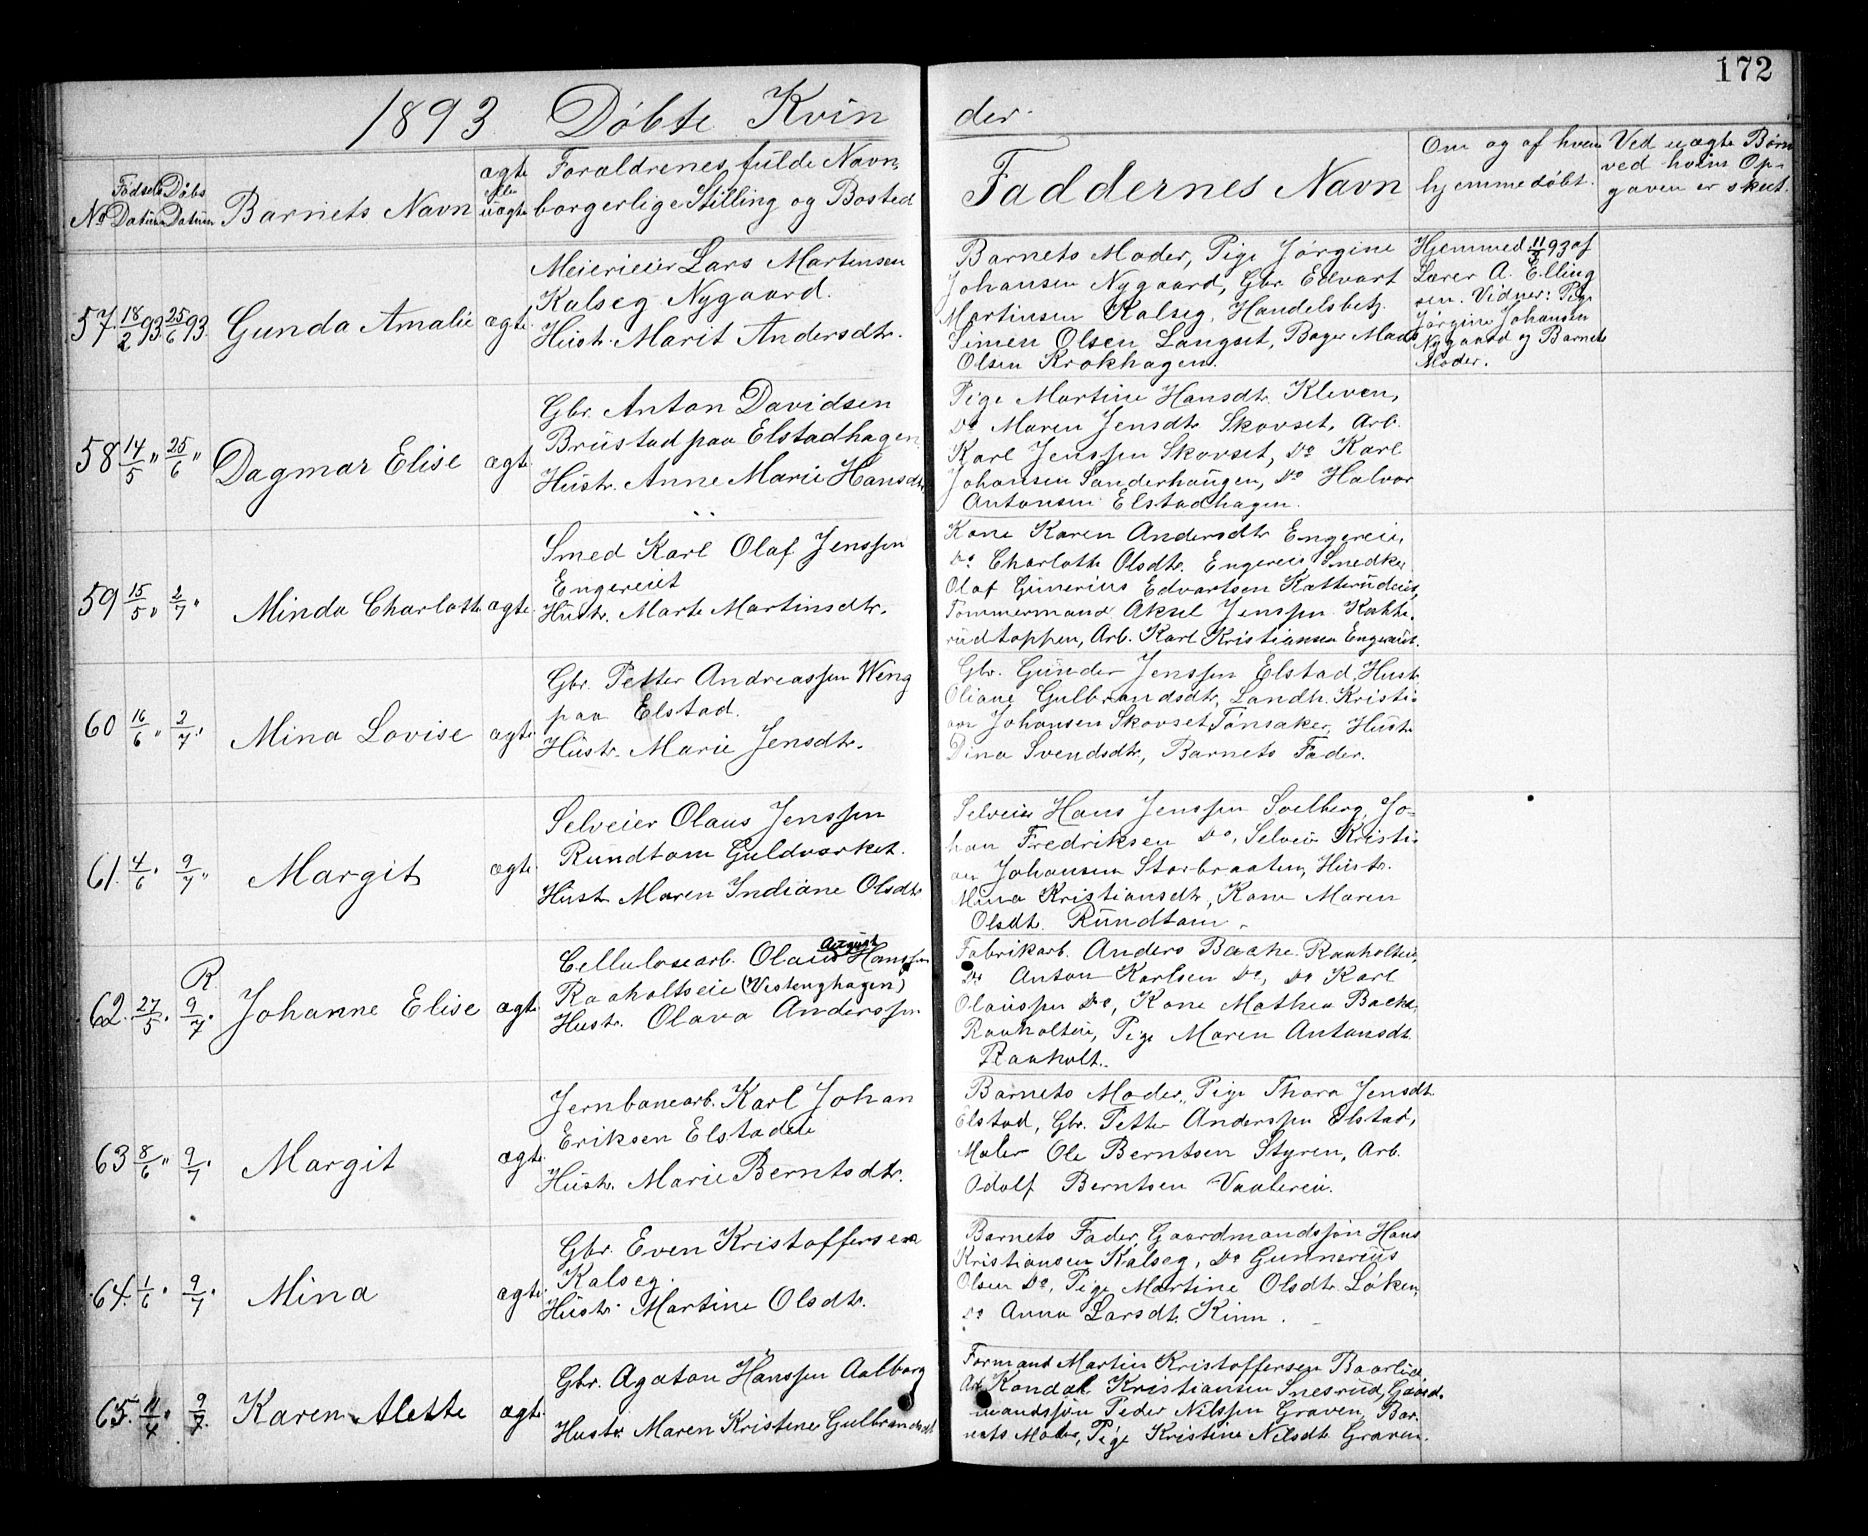 172
1893 Döbte Kvinder.
No Födsels Datum Döbs Datum Barnets Navn ægte eller uægte Forældrenes fulde Navn, borgerlige Stilling og Bosted Faddernes Navn Om og af hvem hjemmedöbt. Ved uægte Børn ved hvem Opgaven er skeet.
57. 18/2 93. 25/6 93. Gunda Amalie ægte
Meierieier Lars Martinsen
Kalseg Nygaard.
Hustr. Marit Andersdtr.
Barnets Moder, Pige Jørgine
Johansen Nygaard, Gbr. Edvart
Martinsen Kalseg, Handelsbetj.
Simen Olsen Langset, Bager Mads
Olsen Krokhagen.
Hjemmed. 11/3 93 af
Lærer A. Elling
sen. Vidner: Pige
Jørgine Johansen
Nygaard og Barnets
Moder.
58 14/5 " 25/6 " Dagmar Elise ægte
Gbr. Anton Davidsen
Brustad paa Elstadhagen
Hustr. Anne Marie Hansdtr.
Pige Martine Hansdtr. Kleven,
Do Maren Jensdtr. Skovset, Arb.
Karl Jenssen Skovset, Do Karl
Johansen Sanderhaugen, Do Halvor
Antonsen Elstadhagen.
59 15/5 " 2/7 " Minda Charlotte ægte
Smed Karl Olaf Jenssen
Engereiet
Hustr. Marte Martinsdtr.
Kone Karen Andersdtr Engereie,
Do Charlotte Olsdtr. Engereie Snedker
Olaf Gunerius Edvartsen Katterudeie,
Tømmermand Aksel Jenssen Katte-
rudtoppen, Arb. Karl Kristiansen Engereiet.
60 16/6 " 2/7 " Mina Lovise ægte
Gbr. Petter Andreassen Weng
paa Elstad.
Hustr. Marie Jensdtr.
Gbr. Gunder Jenssen Elstad, Hustr.
Oliane Gulbrandsdtr, Landh. Kristi-
an Johansen Skovset Tønsaker, Hustr.
Dina Svendsdtr, Barnets Fader.
61. 4/6 " 9/7 " Margit ægte
Selveier Olaus Jenssen
Rundtom Guldverket.
Hustr. Maren Indiane Olsdtr
Selveier Hans Jenssen Soelberg, Jo-
han Fredriksen Do, Selveier Kristi-
an Johansen Storbraaten, Hustr.
Mina Kristiansdtr, Kone Maren
Olsdtr. Rundtom.
62. 27/5 " R 9/7 " Johanne Elise ægte
Cellulosearb. Olaus August Hanssen
Raaholtseie (Vestenghagen)
Hustr. Olava Anderssen
Fabrikarb. Anders Bache Raaholteie,
Do Anton Karlsen Do, Do Karl
Olaussen Do, Kone Mathea Bache
Raaholteie, Pige Maren Antonsdtr.
Raaholt.
63 8/6 " 9/7 " Margit ægte
Jernbanearb. Karl Johan
Eriksen Elstadeie
Hustr. Marie Berntsdtr.
Barnets Moder, Pige Thora Jensdtr.
Elstad, Gbr. Petter Anderssen Elstad,
Maler Ole Berntsen Styren, Arb.
Adolf Berntsen Vaalereie.
64. 1/6 " 9/7 " Mina ægte
Gbr. Even Kristoffersen
Kalseg.
Hustr. Martine Olsdtr.
Barnets Fader, Gaardmandssøn Hans
Kristiansen Kalseg, Do Gunnerius
Olsen Do, Pige Martine Olsdtr. Løken,
Do Anna Larsdtr. Kinn.
65. 11/4 " 9/7. Karen Alette ægte
Gbr. Agaton Hanssen Aalborg
Hustr. Maren Kristine Gulbrandsdtr
Formand Martin Kristoffersen Baarlie,
Arb. Kondal Kristiansen Snesrud, Gaard-
mandssøn Peder Nilssen Graven, Bar-
nets Moder, Pige Kristine Nilsdtr. Graven.